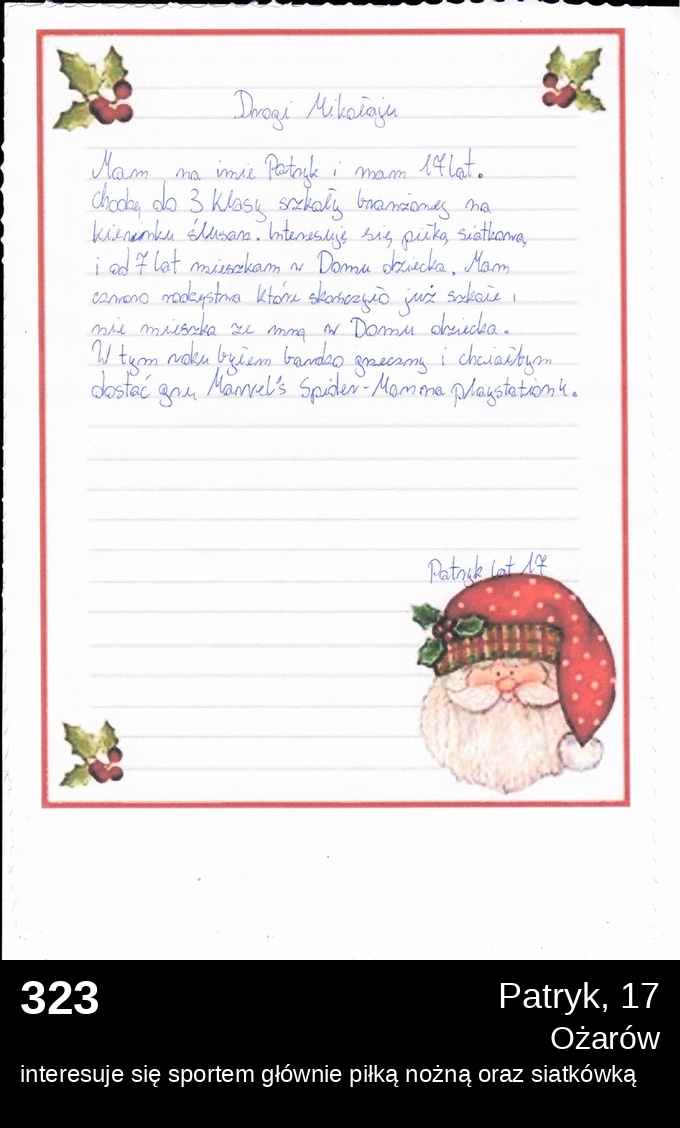 Drogi Mikołaju
Mam na imie Patryk i mam 17 lat.
Chodzę do 3 klasy szkoły branżowej na
kierunku ślusarz. Interesuję się piłką siatkową
i od 7 lat mieszkam w Domu dziecka. Mam
czworo rodzeństwa które skończyło już szkołe i
nie mieszka ze mną w Domu dziecka.
W tym roku byłem bardzo grzeczny i chciałbym
dostać grę Marvel's Spider-Man na playstation 4.
Patryk lat 17
323
Patryk, 17
Ożarów
interesuje się sportem głównie piłką nożną oraz siatkówką